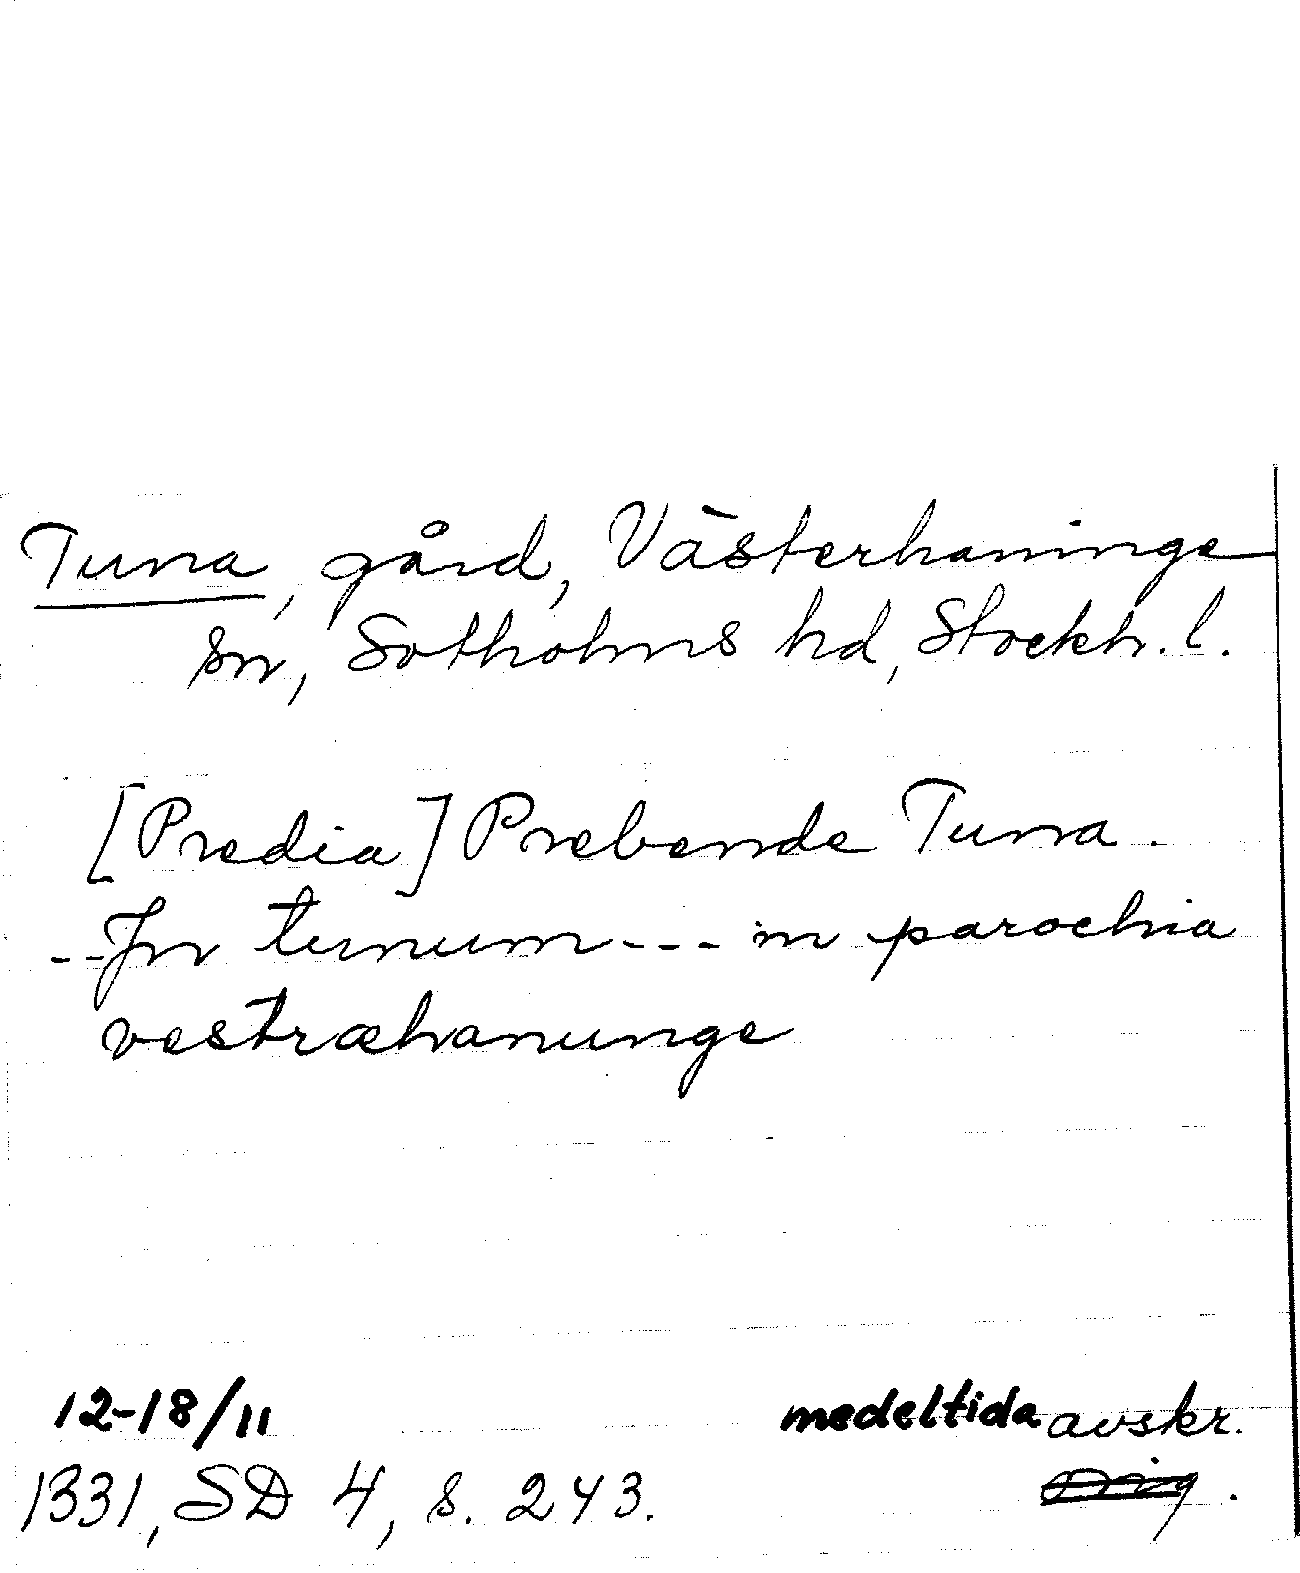 Tuna, gård, Västerhaninge
sn, Sotholms hd, Stockh. l.
[Predia] Prebende Tuna.
--Jn tunum --- in parochia
vestræhanunge
12-18/11 medeltida avskr.
1331, SD 4, s. 243. orig.